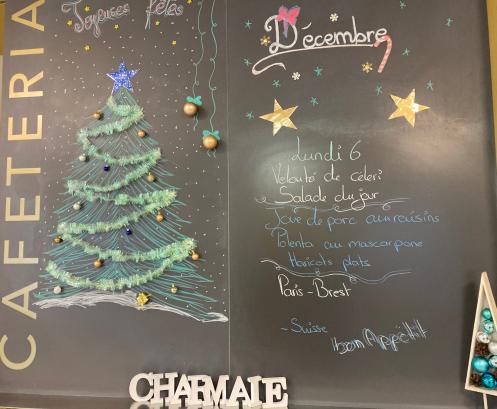 CAFETERIA
Joyeuses fêtes
Décembre
Lundi 6
Velouté de céleri
Salade du jour
Joue de porc aux raisins
Polenta au mascarpone
Haricots plats
Paris-Brest
- Suisse
Bon Appétit
CHARMAIE